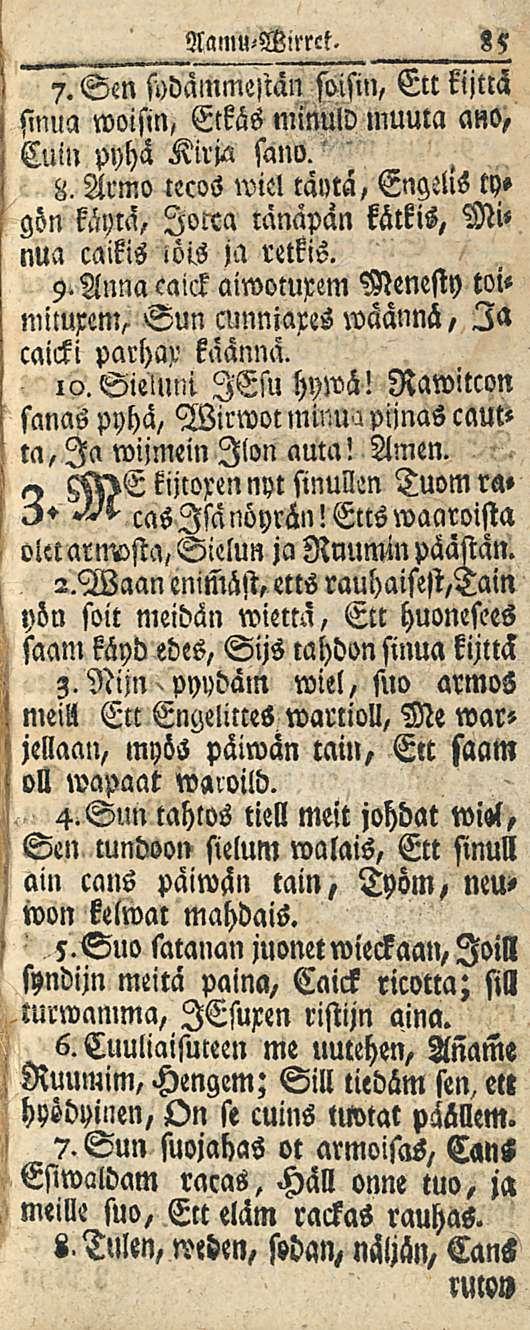 Aamu-Wirret. 85
7. Sen sydämmestän soisin, Ett kijttä
sinua woisin, Etkäs minuld muuta ano,
Cuin pyhä Kirja sano.
8. Armo tecos wiel täytä, Engelis ty-
gön käytä, Jotca tänäpän kätkis, Mi-
nua caikis töis ja retkis.
9. Anna caick aiwotuxem Menesty toi-
mituxem, Sun cunniaxes wäännä, Ja
caicki parhax käännä.
10. Sieluni JEsu hywä! Rawitcon
sanas pyhä, Wirwot minua pijnas caut-
ta, Ja wijmein Ilon auta! Amen.
3. ME kijtoxen nyt sinullen Tuom ra-
cas Isä nöyrän! Etts waaroista
olet armosta, Sielun ja Ruumin päästän.
2. Waan enim̃äst, etts rauhaisest, Tain
yön soit meidän wiettä, Ett huonesees
saam käyd edes, Sijs tahdon sinua kijttä
3. Nijn pyydäm wiel, suo armos
meill Ett Engelittes wartioll, Me war-
jellaan, myös päiwän tain, Ett saam
oll wapaat waroild.
4. Sun tahtos tiell meit johdat wiel,
Sen tundoon sielum walais, Ett sinull
ain cans päiwän tain, Työm, neu-
won kelwat mahdais.
5. Suo satanan juonet wieckaan, Joill
syndijn meitä paina, Caick ricotta; sill
turwamma, JEsuxen ristijn aina.
6. Cuuliaisuteen me uutehen, Añam̃e
Ruumim, Hengem; Sill tiedäm sen, ett
hyödyinen, On se cuins tuotat päällem.
7. Sun suojahas ot armoisas, Cans
Esiwaldam racas, Häll onne tuo, ja
meille suo, Ett eläm rackas rauhas.
8. Tulen, weden, sodan, näljän, Cans
ruton